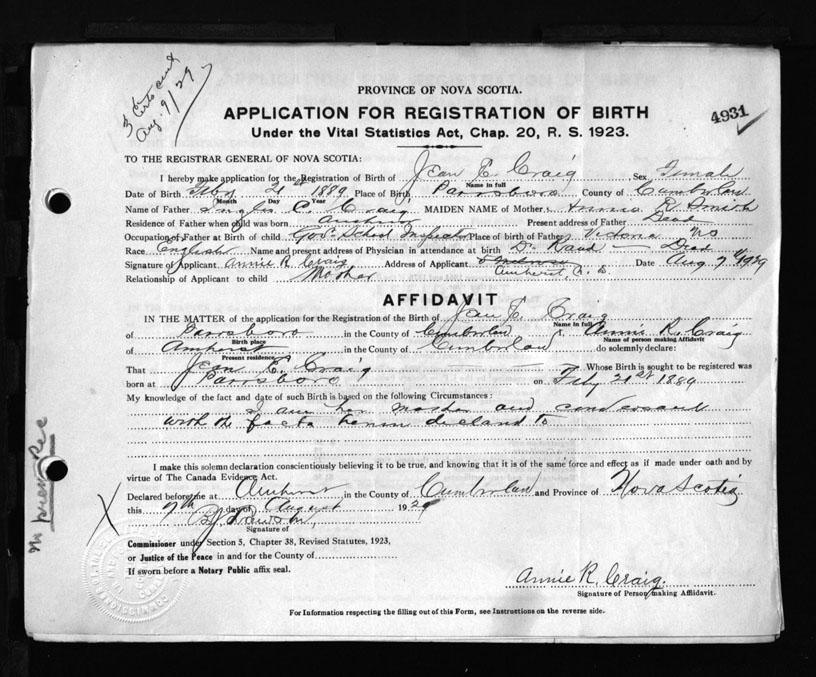 Aug. 9/29
PROVINCE OF NOVA SCOTIA.
APPLICATION FOR REGISTRATION OF BIRTH
4931
Under the Vital Statistics Act, Chap. 20, R. S. 1923.
TO THE REGISTRAR GENERAL OF NOVA SCOTIA:
I hereby make application for the Registration of Birth of Jean E. Craig Sex Female
Name in full
Date of Birth Feby 21st 1889 Place of Birth Parrsboro County of Cumberland
Month Day Year
Name of Father C. Craig MAIDEN NAME of Mother Annie R. Smith
Residence of Father when child was born Amherst Present address of Father Dead
Occupation of Father at Birth of child Gov't School Inspector Place of birth of Father Victoria NS
Race English Name and present address of Physician in attendance at birth Dr Rand — Dead
Signature of Applicant Annie R Craig Address of Applicant Date Aug 7th 1929
Amherst, N. S.
Relationship of Applicant to child Mother
AFFIDAVIT
IN THE MATTER of the application for the Registration of the Birth of Jean E. Craig
Name in full
of Parrsboro in the County of Cumberland I, Annie R. Craig
Birth place Name of person making Affidavit
of Amherst in the County of Cumberland do solemnly declare:
Present residence
That Jean E. Craig Whose Birth is sought to be registered was
born at Parrsboro on Feby 21st 1889
My knowledge of the fact and date of such Birth is based on the following Circumstances:
I am her mother and conversant
with the facts herein declared to
no previous Rec
I make this solemn declaration conscientiously believing it to be true, and knowing that it is of the same force and effect as if made under oath and by
virtue of The Canada Evidence Act.
Declared before me at Amherst in the County of Cumberland and Province of Nova Scotia
this 7th day of August 1929
X
Signature of
Commissioner under Section 5, Chapter 38, Revised Statutes, 1923,
or Justice of the Peace in and for the County of
If sworn before a Notary Public affix seal.
Annie R. Craig.
Signature of Person making Affidavit.
For Information respecting the filling out of this Form, see Instructions on the reverse side.